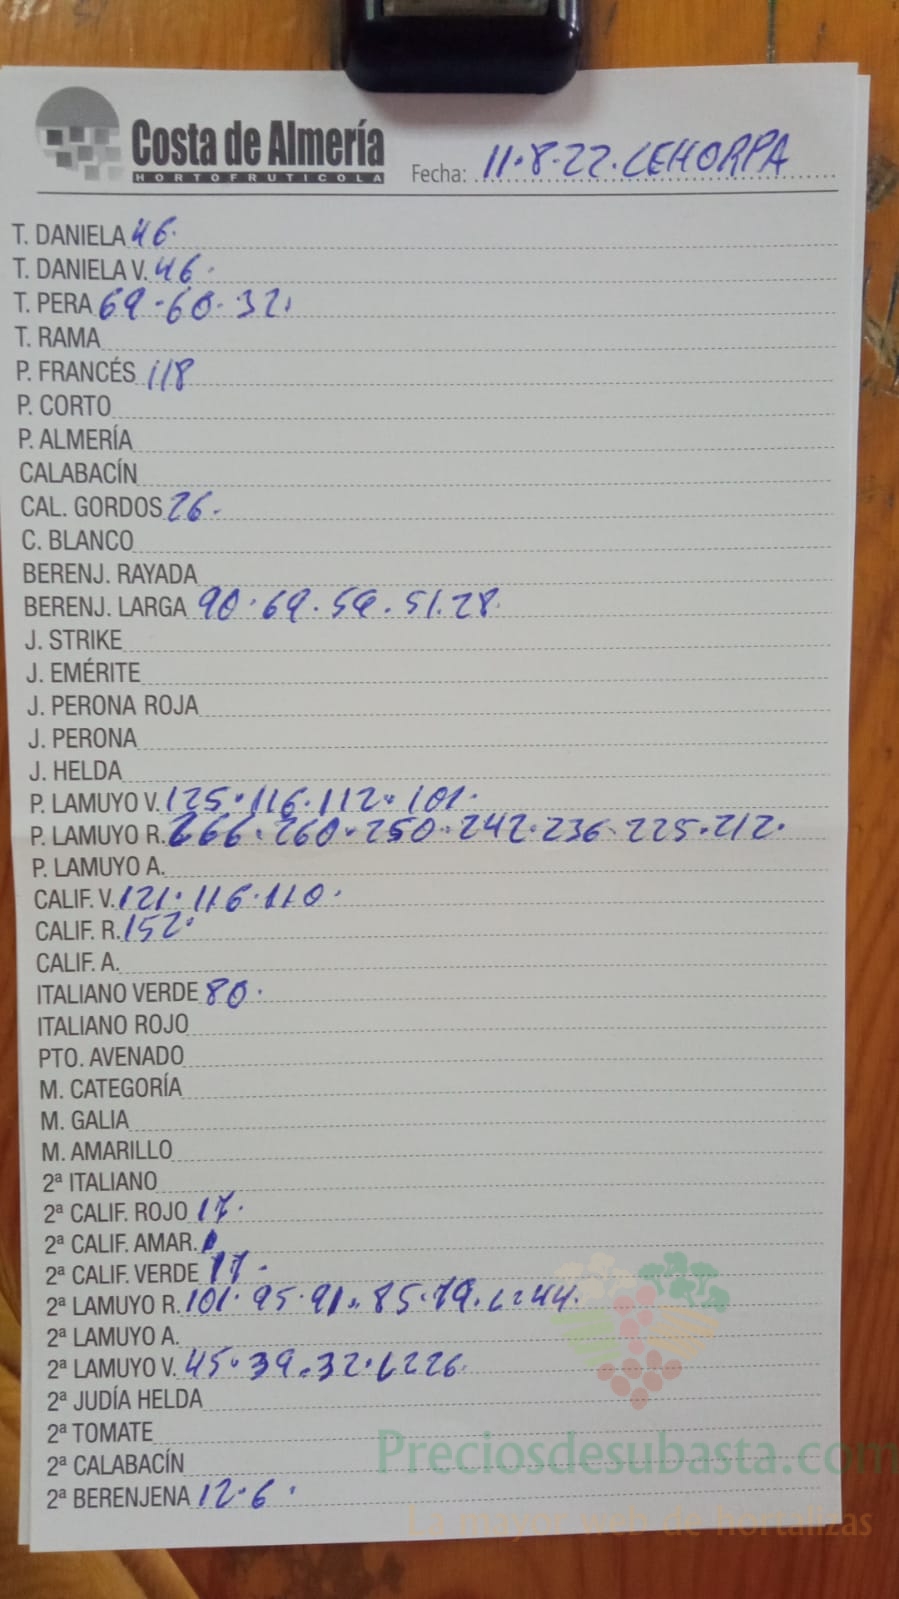 Costa de Almería
HORTOFRUTICOLA
Fecha: 11·8·22·CEHORPA
T. DANIELA 46·
T. DANIELA V. 46·
T. PERA 69·60·32·
T. RAMA
P. FRANCÉS 118
P. CORTO
P. ALMERÍA
CALABACÍN
CAL. GORDOS 26·
C. BLANCO
BERENJ. RAYADA
BERENJ. LARGA 90·69·59·51·28·
J. STRIKE
J. EMÉRITE
J. PERONA ROJA
J. PERONA
J. HELDA
P. LAMUYO V. 125·116·112·101·
P. LAMUYO R. 266·260·250·242·236·225·212·
P. LAMUYO A.
CALIF. V. 121·116·110·
CALIF. R. 152·
CALIF. A.
ITALIANO VERDE 80·
ITALIANO ROJO
PTO. AVENADO
M. CATEGORÍA
M. GALIA
M. AMARILLO
2ª ITALIANO
2ª CALIF. ROJO 17·
2ª CALIF. AMAR.
2ª CALIF. VERDE 17·
2ª LAMUYO R. 101·95·91·85·79· 44·
2ª LAMUYO A.
2ª LAMUYO V. 45·39·32· 26·
2ª JUDÍA HELDA
2ª TOMATE
2ª CALABACÍN
2ª BERENJENA 12·6·
Preciosdesubasta.com
La mayor web de hortalizas